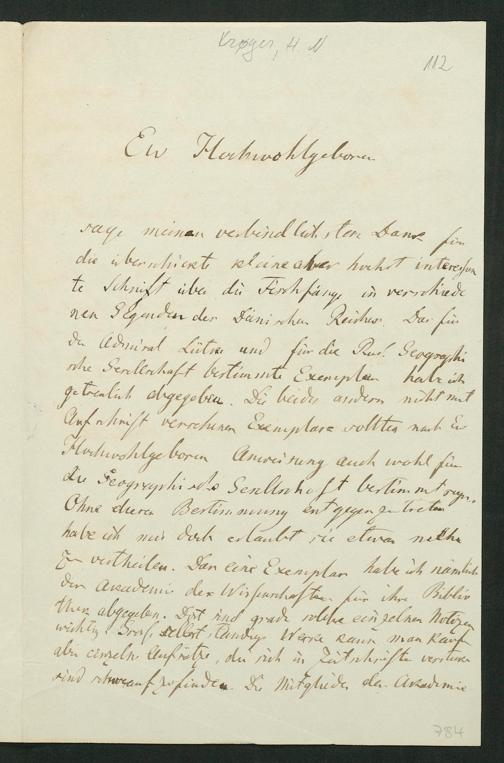 Krøger, H N
112
Ew Hochwohlgeboren
sage meinen verbindlichsten Dank für
die überschickte kleine aber höchst interessan
te Schrift über die Fischfänge in verschiede
nen Gegenden des Dänischen Reiches. Das für
den Admiral Lütke und für die Russ. Geographi
sche Gesellschaft bestimmte Exemplar habe ich
getreulich abgegeben. Die beiden andern nicht mit
Aufschrift versehenen Exemplare sollten nach Ew
Hochwohlgeboren Anweisung auch wohl für
die Geographische Gesellschaft bestimmt seyn.
Ohne dieser Bestimmung entgegen zu treten
habe ich mir doch erlaubt sie etwas mehr
zu vertheilen. Das eine Exemplar habe ich nämlich
der Akademie der Wissenschaften für ihre Biblio
thek abgegeben. Dort sind grade solche einzelnen Notizen
wichtig. Große selbstständige Werke kann man kaufen
aber einzelne Aufsätze, die sich in Zeitschriften
sind schwer aufzufinden. Die Mitglieder der Akademie
784